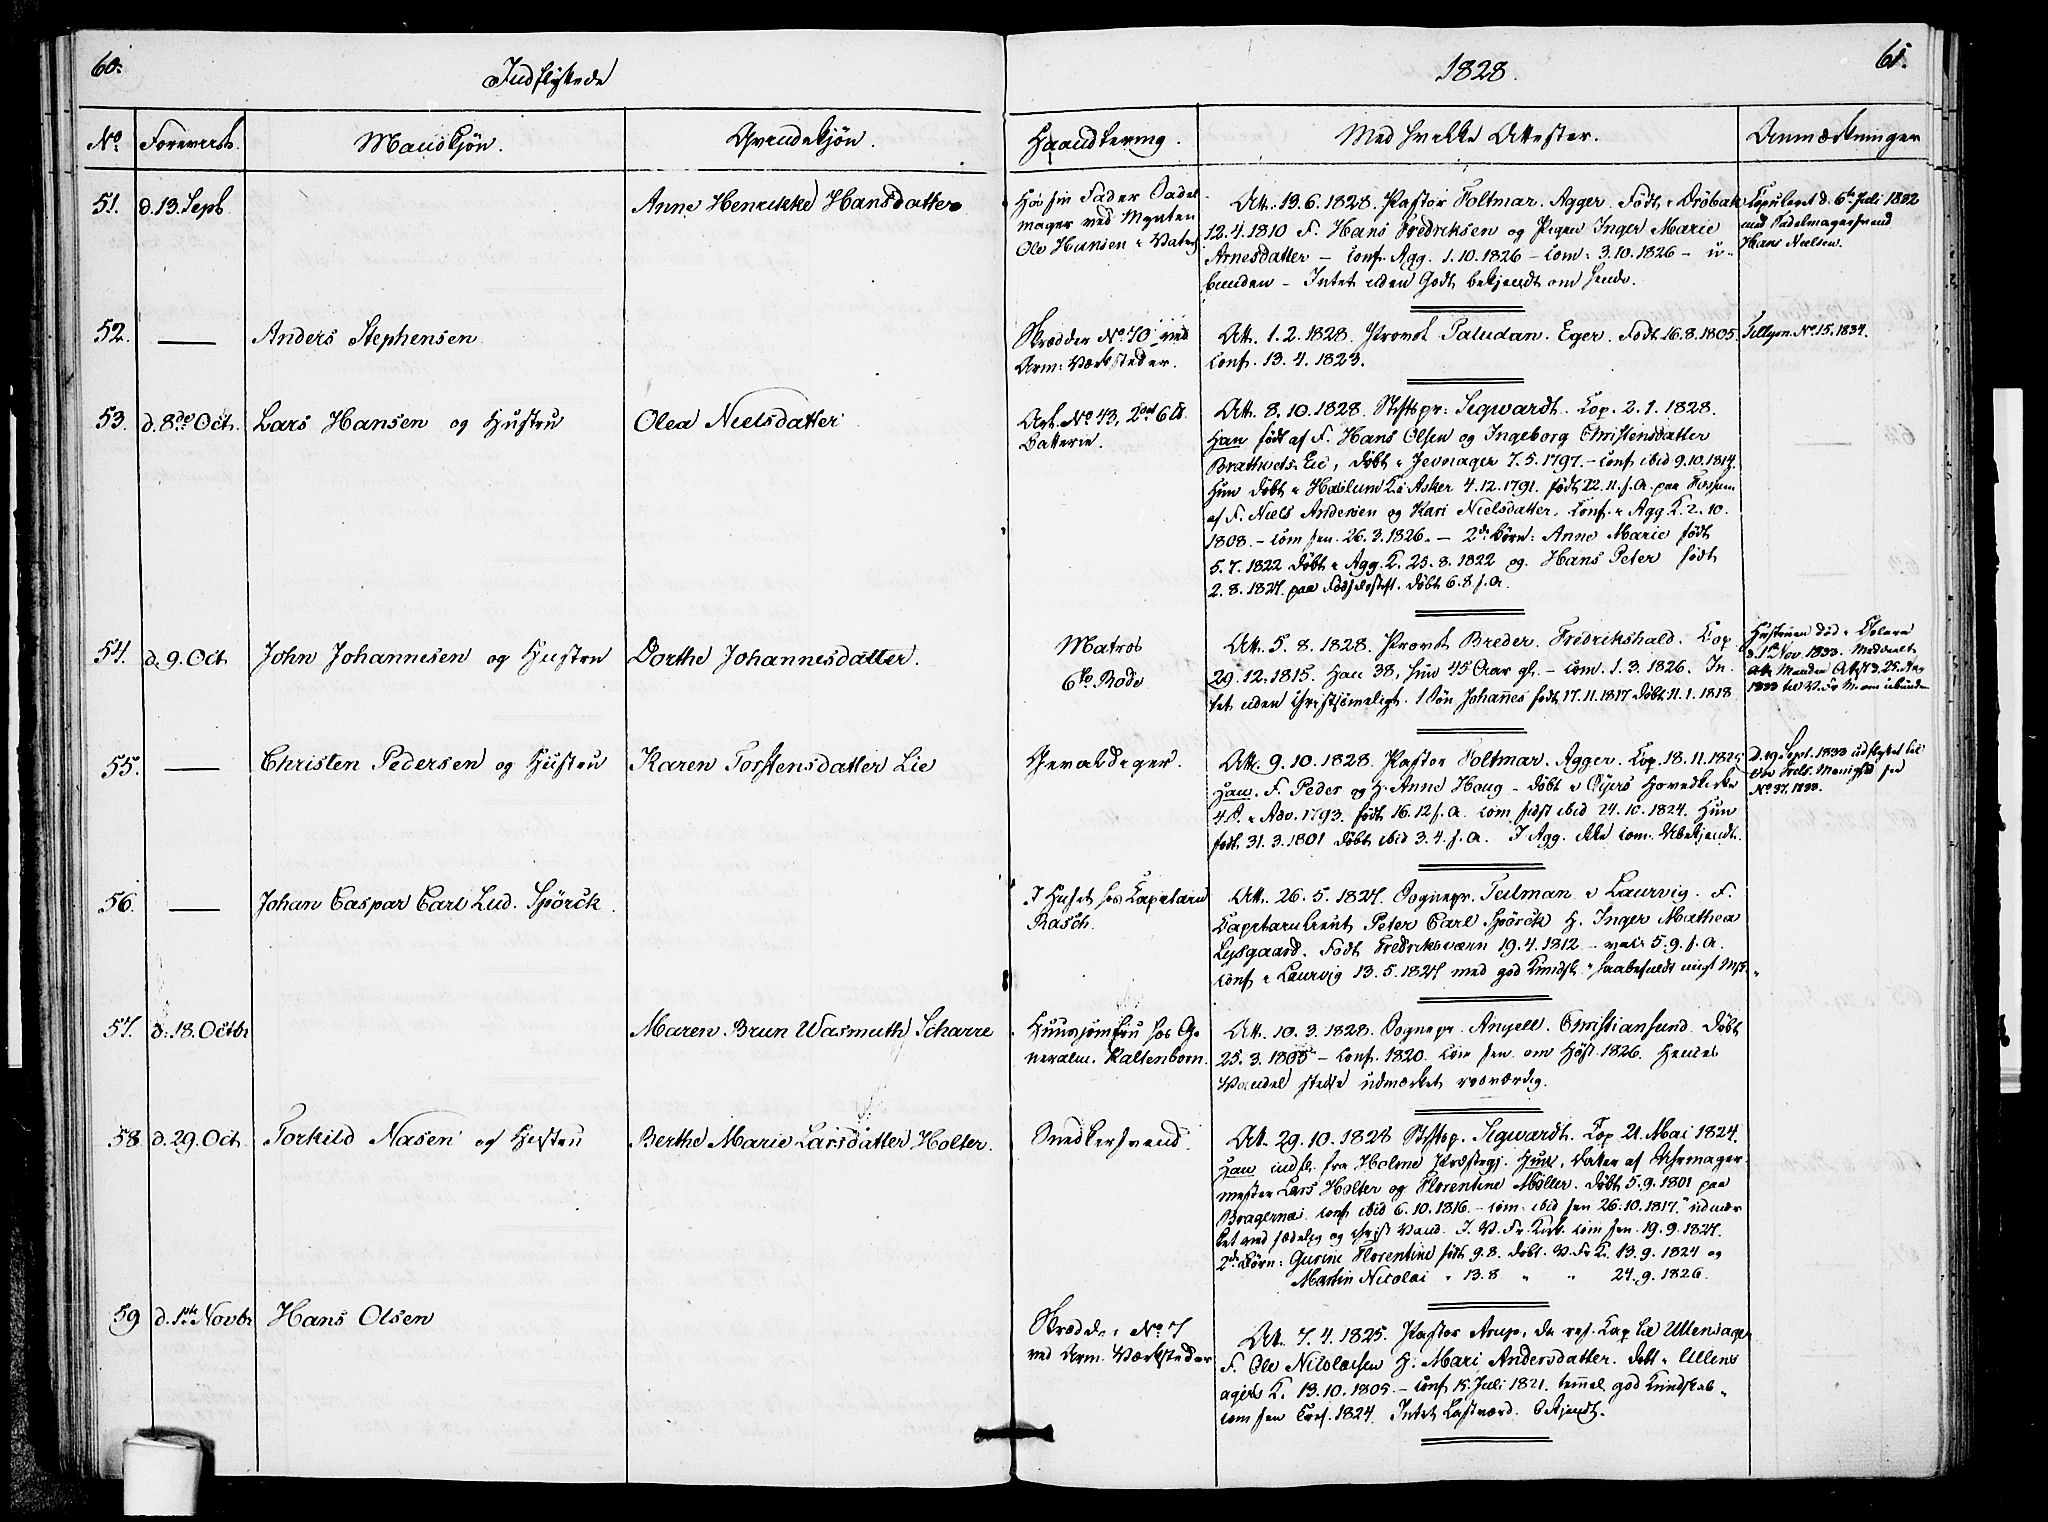 60.
Indflyttede
No.
Forevist.
Mandkjön.
Qvindekjön.
51.
d. 13. Sept
Anne Henrikke Hansdatter
52.
Anders Stephensen
53.
d. 8de Oct.
Lars Hansen og Hustru
Olea Nielsdatter
54.
d. 9. Oct
John Johannesen og Hustru
Dorthe Johannesdatter.
55.
Christen Pedersen og Hustru
Karen Torstensdatter Lie
56.
Johan Caspar Carl Lud. Spörck
57.
d. 18. Octbr
Maren Brun Wasmuth Scharre
58
d. 29. Oct
Torkild Nasen og Hustru
Berthe Marie Larsdatter Holter.
59
d. 1ste Novbr
Hans Olsen
1828.
61.
Haandtering.
Med hvilke Attester.
Anmærkninger
Hos sin Fader Sadel
mager ved Mynten
Ole Hansen i Vaterl
Att. 13.6.1828. Pastor Foltmar. Agger. Födt i Dröbak
12.4.1810 F. Hans Fredriksen og Pigen Inger Marie
Arnesdatter – conf. Agg. 1.10.1826 – com: 3.10.1826 – u-
bunden – Intet uden Godt bekjendt om hende.
Copuleret d. 6te Juli 1832
med Sadelmagersvend
Hans Nielsen.
Skrædder No 70 ved
Arm: Værksteder.
Att. 1.2.1828. Provst Paludan. Eger. Födt 16.8.1805.
conf. 13.4.1823.
Tillysn. No 15. 1834.
Art. No 43, 2det 6 ℔
Batterie.
Att. 8.10.1828. Stiftspr: Sigwardt. Cop. 2.1.1828.
Han födt af F. Hans Olsen og Ingeborg Christensdatter
Brathvets. Eie, döbt i Jevnager 7.5.1797. – conf ibid 9.10.1814.
Hun döbt i Haslum K. i Asker 4.12.1791. födt 12.11. s.A. paa Fossum
af F. Niels Andersen og Kari Nielsdatter. Conf. i Agg K. 2.10.
1808. – com sen. 26.3.1826. – 2de Börn: Anne Marie födt
5.7.1822 döbt i Agg. K. 25.8.1822 og Hans Peter födt
2.8.1827. paa Födselsstift. döbt 6.8. s.A.
Matros
6te Rode
Att. 5.8.1828. Provst Breder. Fredrikshald. Cop
29.12.1815. Han 38, hun 45 Aar gl. – com. 1.3.1826. In-
tet uden Christsömeligt. 1 Sön Johannes födt 17.11.1817 döbt 11.1.1818
Hustruen död i Cholera
d. 1ste Nov 1833. Meddeelt
Manden Attest d. 25. Aug
1833 til V. Fr M. om ubunden
Gevaldiger.
Att. 9.10.1828. Pastor Foltmar. Agger. Cop. 18.11.1825
Han. F. Peder og H. Anne Haug – döbt i Öyers Hovedkirke
4 S. i Adv. 1793. födt 16.12 s.A. com sidst ibid 24.10.1824. Hun
födt 31.3.1801 döbt ibid 3.4. s.A. I Agg. ikke com. Ubekjendt.
D. 19 Sept. 1833 udflyttet til
Vor Frels. Menighd see
No 37. 1833.
I Huset hos Capitain
Rasch.
Att. 26.5.1827. Sognepr. Teilman i Laurvig. F.
Capitainlieut Peter Carl Spörck H. Inger Mathea
Lysgaard. Födt Fredriksværn 19.4.1812 – vacc 5.9. s.A.
conf i Laurvig 13.5.1827 med god Kundsk. "haabefuldt ungt Msk."
Huusjomfru hos Ge-
neralm. Kaltenborn.
Att. 10.3.1828. Sognepr. Angell. Christiansund. Döbt
25.3.1805 – conf. 1820. com sen. om Höst. 1826. Hendes
Vandel stedse udmærket rosværdig.
Snedkersvend.
Att. 29.10.1828 Stiftsp. Sigwardt. Cop 21. Mai 1824.
Han indfl. fra Holme Præstegj. Hun, Datter af Uhrmager-
mester Lars Holter og Florentine Möller. döbt 5.9.1801 paa
Bragernæs. conf ibid 6.10.1816. – com. ibid sen 26.10.1817. "udmær-
ket ved sædelig og christ Vand. I V. Fr Kirk. com sen. 19.9.1827.
2de Börn: Gurine Florentine födt 9.8. döbt. V. Fr K. 13.9.1824 og
Martin Nicolai " 13.8 " " 24.9.1826.
Skrædder No 7
ved Arm. Værksteder
Att. 7.4.1825. Pastor Arup, da res. Cap til Ullensager
F. Ole Nicolaisen H. Mari Andersdatter. döbt i Ullens
agers K. 13.10.1805. – conf 15 Juli 1821. temmel. god Kundskab.
com sen Oct. 1824. Intet Lastværd. bekjendt.